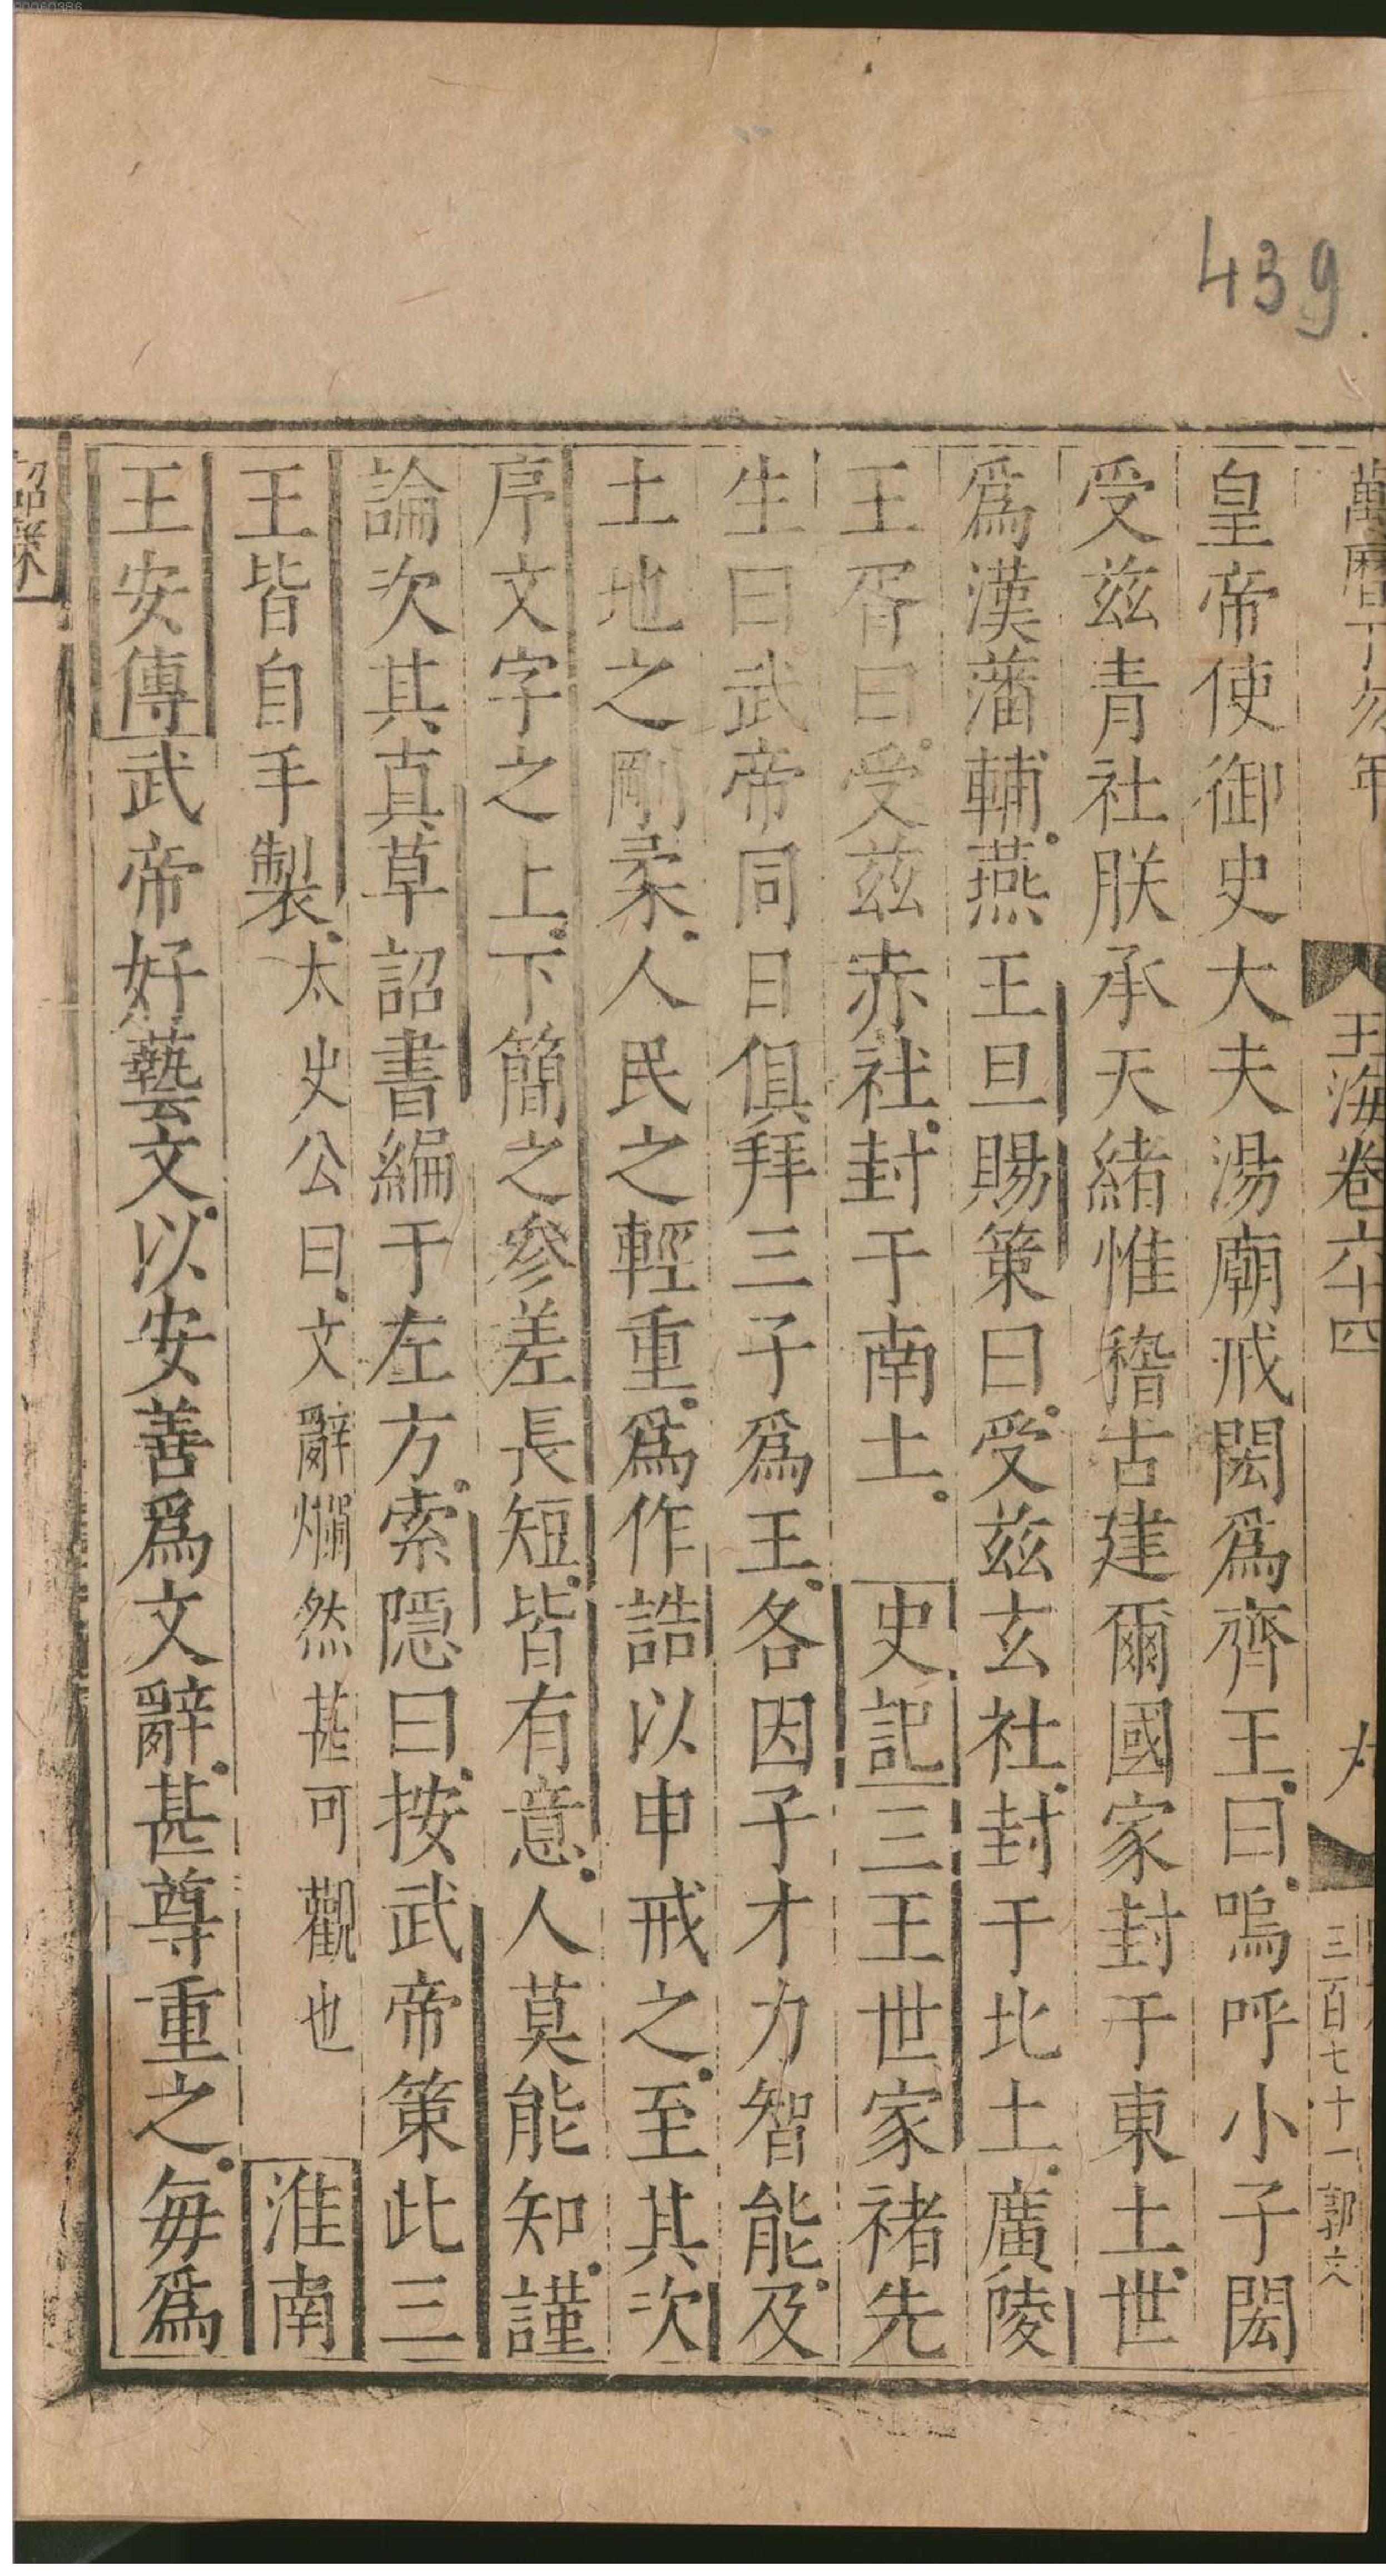 90060386
439
萬曆丁亥年
玉海卷六十四
三百七十一
皇帝使御史大夫湯廟戒閎爲齊王曰嗚呼小子閎
受茲青社朕承天緒惟稽古建爾國家封于東土世
爲漢藩輔燕王旦賜策曰受茲玄社封于北土廣陵
王胥曰受茲赤社封于南土 史記三王世家褚先
生曰武帝同日俱拜三子爲王各因子才力智能及
土地之剛柔人民之輕重爲作誥以申戒之至其次
序文字之上下簡之參差長短皆有意人莫能知謹
論次其真草詔書編于左方索隱曰按武帝策此三
王皆自手製太史公曰文辭爛然甚可觀也 淮南
王安傳武帝好藝文以安善爲文辭甚尊重之每爲